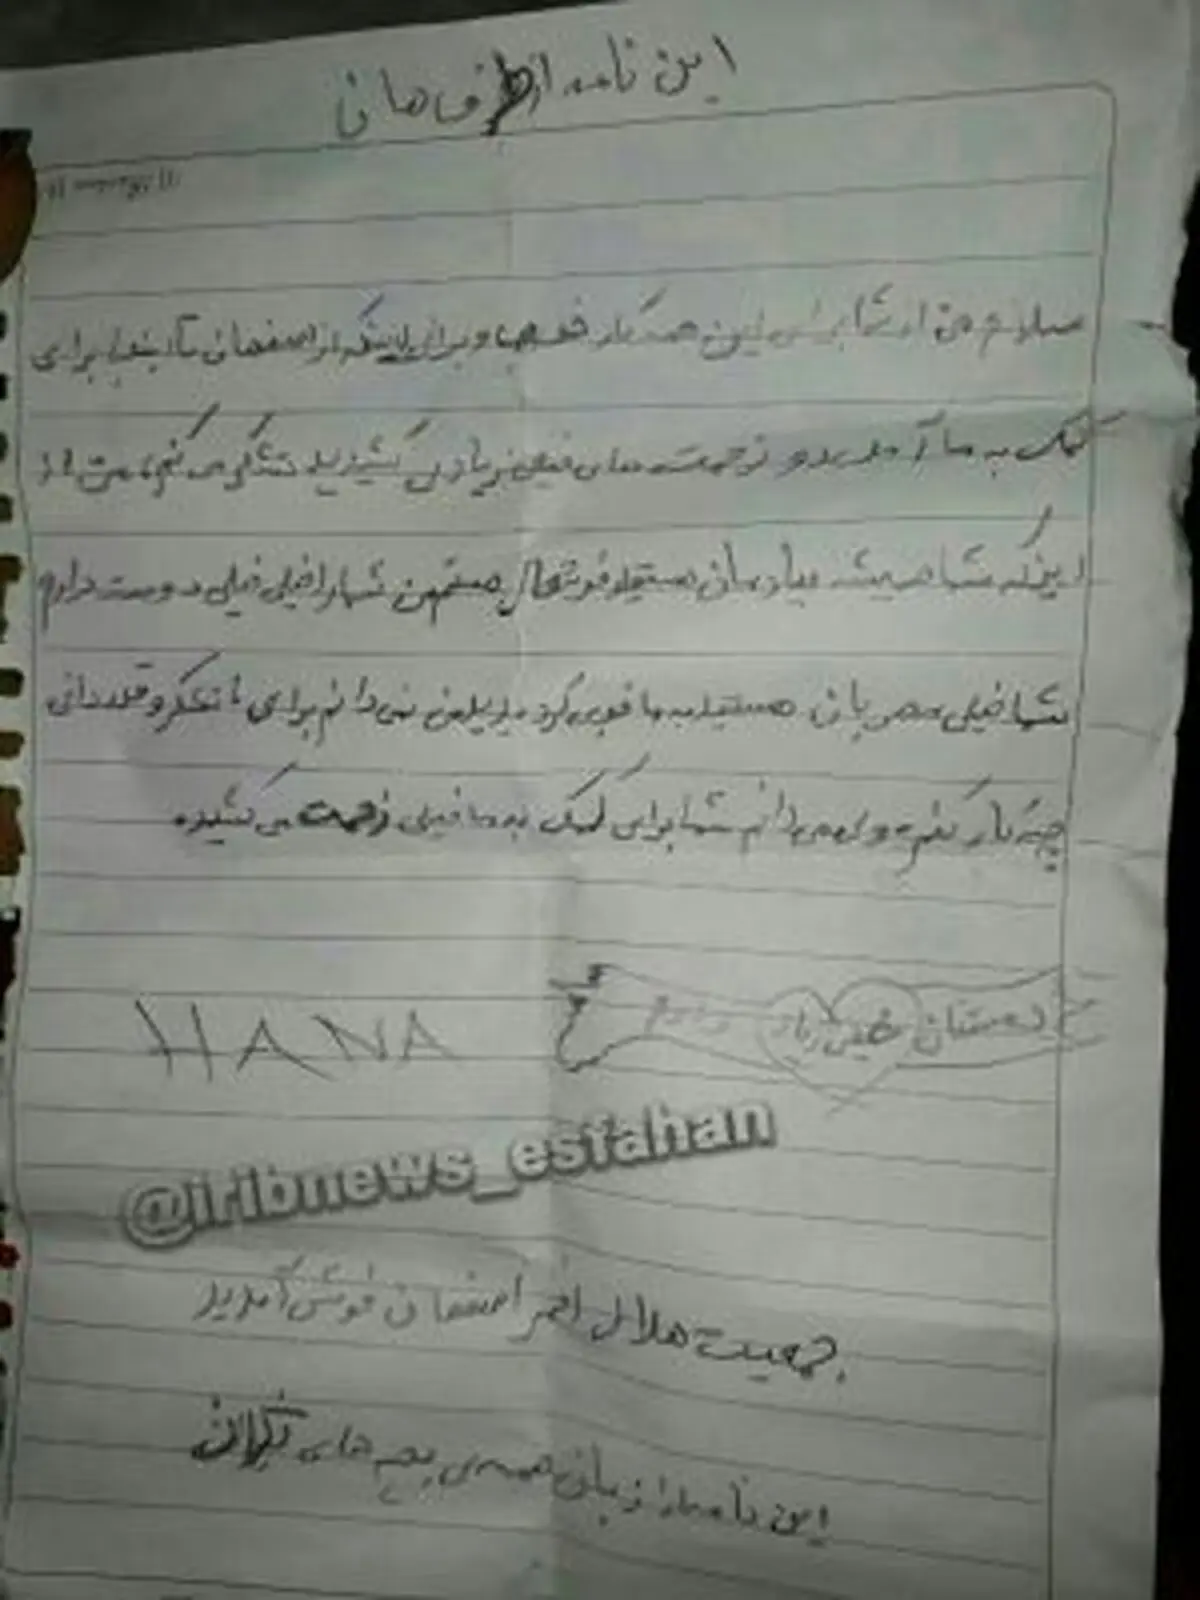 این نامه از طرف هان
سلام من از شما برای این همه کار خوب و برای اینکه از اصفهان تا اینجا برای
کمک به ما آمدید و زحمت های خیلی زیادی کشیدید تشکر می کنم، من از
اینکه شما همیشه بیادمان هستید خوشحال هستم من شما را خیلی خیلی دوست دارم
شما خیلی مهربان هستید به ما خوبی کردید من نمی دانم برای تشکر و قدردانی
چه کار کنم ولی می دانم شما برای کمک به ما خیلی زحمت می کشید.
دوستتان خیلی زیاد دارم
HANA
@iribnews_esfahan
جمعیت هلال احمر اصفهان خوش آمدید
این نامه از زبان همه ی بچه های